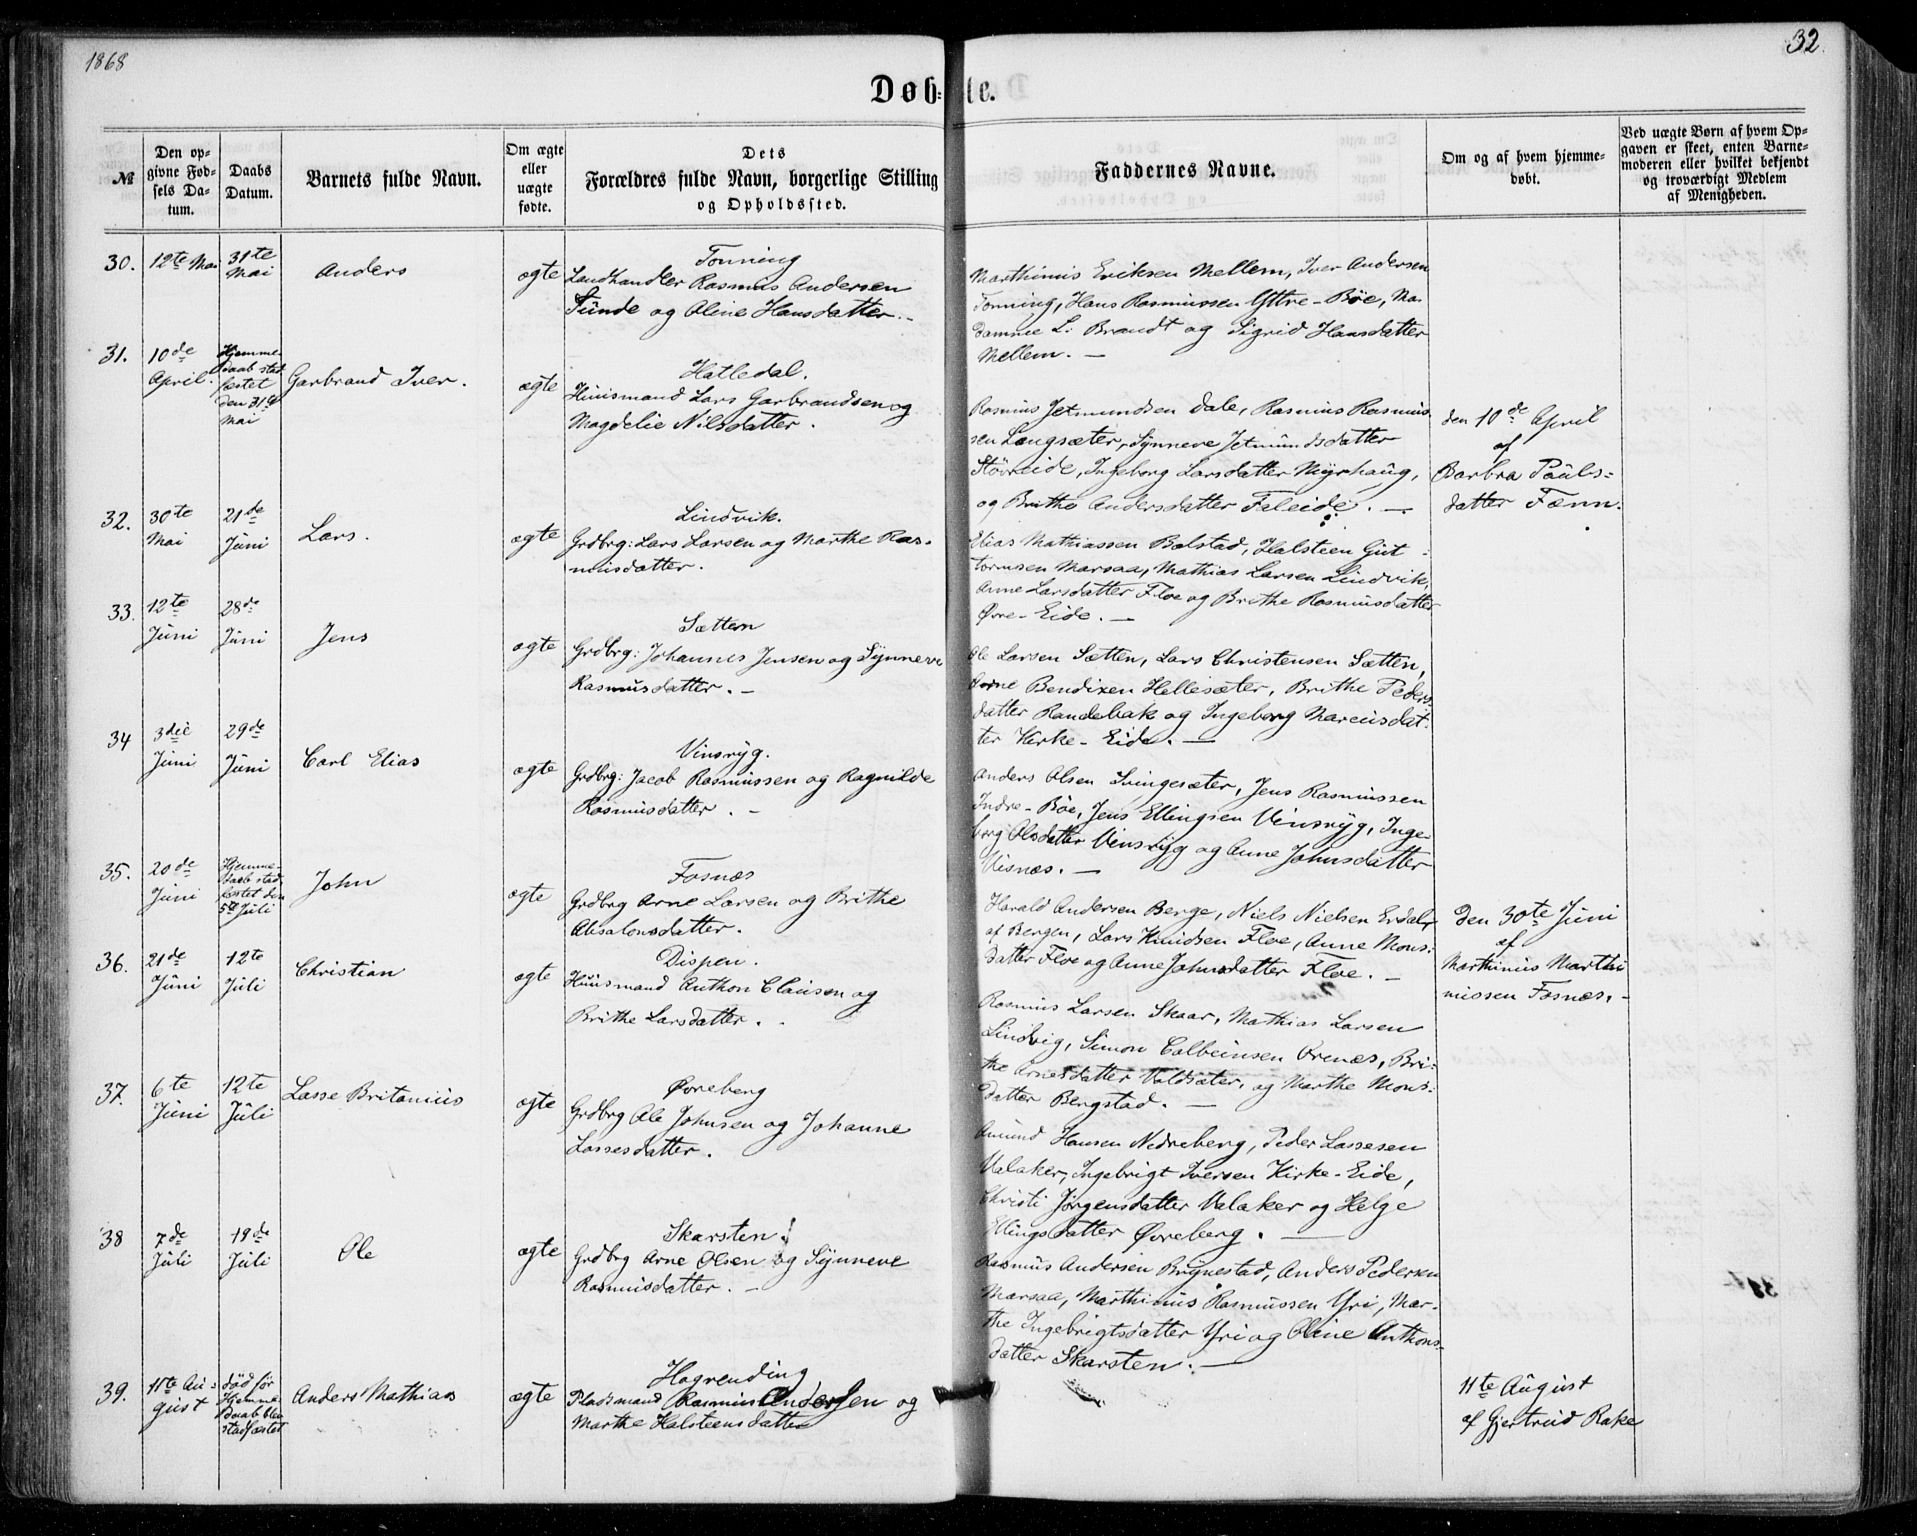 1868
32.
Døb-
te.
№
Den op-
givne Fød-
sels Da-
tum.
Daabs
Datum.
Barnets fulde Navn.
Om ægte
eller
uægte
fødte.
Dets
Forældres fulde Navn, borgerlige Stilling
og Opholdssted.
Faddernes Navne.
Om og af hvem hjemme-
døbt.
Ved uægte Børn af hvem Op-
gaven er skeet, enten Barne-
moderen eller hvilket bekjendt
og troværdigt Medlem
af Menigheden.
30.
12te Mai
31te
Mai
Anders
ægte
Tonning
Landhandler Rasmus Andersen
Sunde og Oline Hansdatter.-
Marthinus Eriksen Mellem, Iver Andersen
Tonning, Hans Rasmussen Yttre-Böe, Ma-
damme L: Brandt og Sigrid Hansdatter
Mellem. —
31.
10de
April.
Hjemme-
daab stad
fæstet
den 31te
Mai
Garbrand Iver.
ægte
Hatledal.
Huusmand Lars Garbrandsen og
Magdelie Nilsdatter.
Rasmus Jetmundsen Dale, Rasmus Rasmus-
sen Langsæter, Synneve Jetmundsdatter
Stövreide, Ingeborg Larsdatter Myrhaug,
og Brithe Andersdatter Faleide. —
den 10de April
af
Barbra Pauls-
datter Fænn.
32.
30te
Mai
21de
Juni
Lars.
ægte
Lindvik.
Grdbrg: Lars Larsen og Marthe Ras-
musdatter.
Elias Mathiassen Bølstad, Halsteen Gut-
tormsen Marsaa, Mathias Larsen Lindvik,
Anne Larsdatter Floe og Brithe Rasmusdatter
Øvre-Eide. —
33.
12te
Juni
28de
Juni
Jens
ægte
Sættem
Grdbrg: Johannes Jensen og Synneve
Rasmusdatter. —
Ole Larsen Sætten, Lars Christensen Sætten,
Arne Bendixen Hellesæter, Brithe Peders-
datter Randebak og Ingeborg Marcusdat-
ter Kirke-Eide. —
34
3die
Juni
29de
Juni
Carl Elias
ægte
Vinsryg.
Grdbrg: Jacob Rasmussen og Ragnilde
Rasmusdatter. —
Anders Olsen Svingesæter, Jens Rasmussen
Indre-Böe, Jens Ellingsen Vinsryg, Inge-
borg Olsdatter Vinsryg og Anne Johnsdatter
Visnæs. —
35.
20de
Juni
Hjemme-
daab stad
fæstet den
5te Juli
John
ægte
Fosnæs
Grdbrg Arne Larsen og Brithe
Absalonsdatter.
Harald Andersen Berge, Niels Nielsen Erdal
af Bergen, Lars Knudsen Floe, Anne Mons-
datter Floe og Anne Johnsdatter Floe. —
Den 30te Juni
af
Marthinus Marthi
nussen Fosnæs. -
36.
21de
Juni
12te
Juli
Christian
ægte
Dispen.
Huusmand Anthon Clausen og
Brithe Larsdatter.
Rasmus Larsen Skaar, Mathias Larsen
Lindvig, Simon Colbeinsen Ørenæs, Bri-
the Arnesdatter Voldsæter, og Marthe Mons-
datter Bergstad. —
37.
6te
Juni
12te
Juli
Lasse Britanius
ægte
Øvreberg
Grdbrg Ole Johnsen og Johanne
Lassesdatter.
Amund Hansen Nedreberg, Peder Lassesen
Valaker, Ingebrigt Iversen Kirke-Eide,
Christi Jörgensdatter Valaker og Helge
Ellingsdatter Øvreberg. —
38
7de
Juli
19de
Juli
Ole
ægte
Skarsten.
Grdbrg Arne Olsen og Synneve
Rasmusdatter. —
Rasmus Andersen Brynestad, Anders Pedersen
Marsaa, Marthinus Rasmussen Yri, Mar-
the Ingebrigtsdatter Yri og Oline Anthons-
datter Skarsten. —
39.
11te Au-
gust
död før
Hjemme
Daab blev
stadfæstet
Anders Mathias
ægte
Hagrending
Pladsmand Rasmus Andersen og
Marthe Halsteensdatter
11te August
af Gjertrud Rake